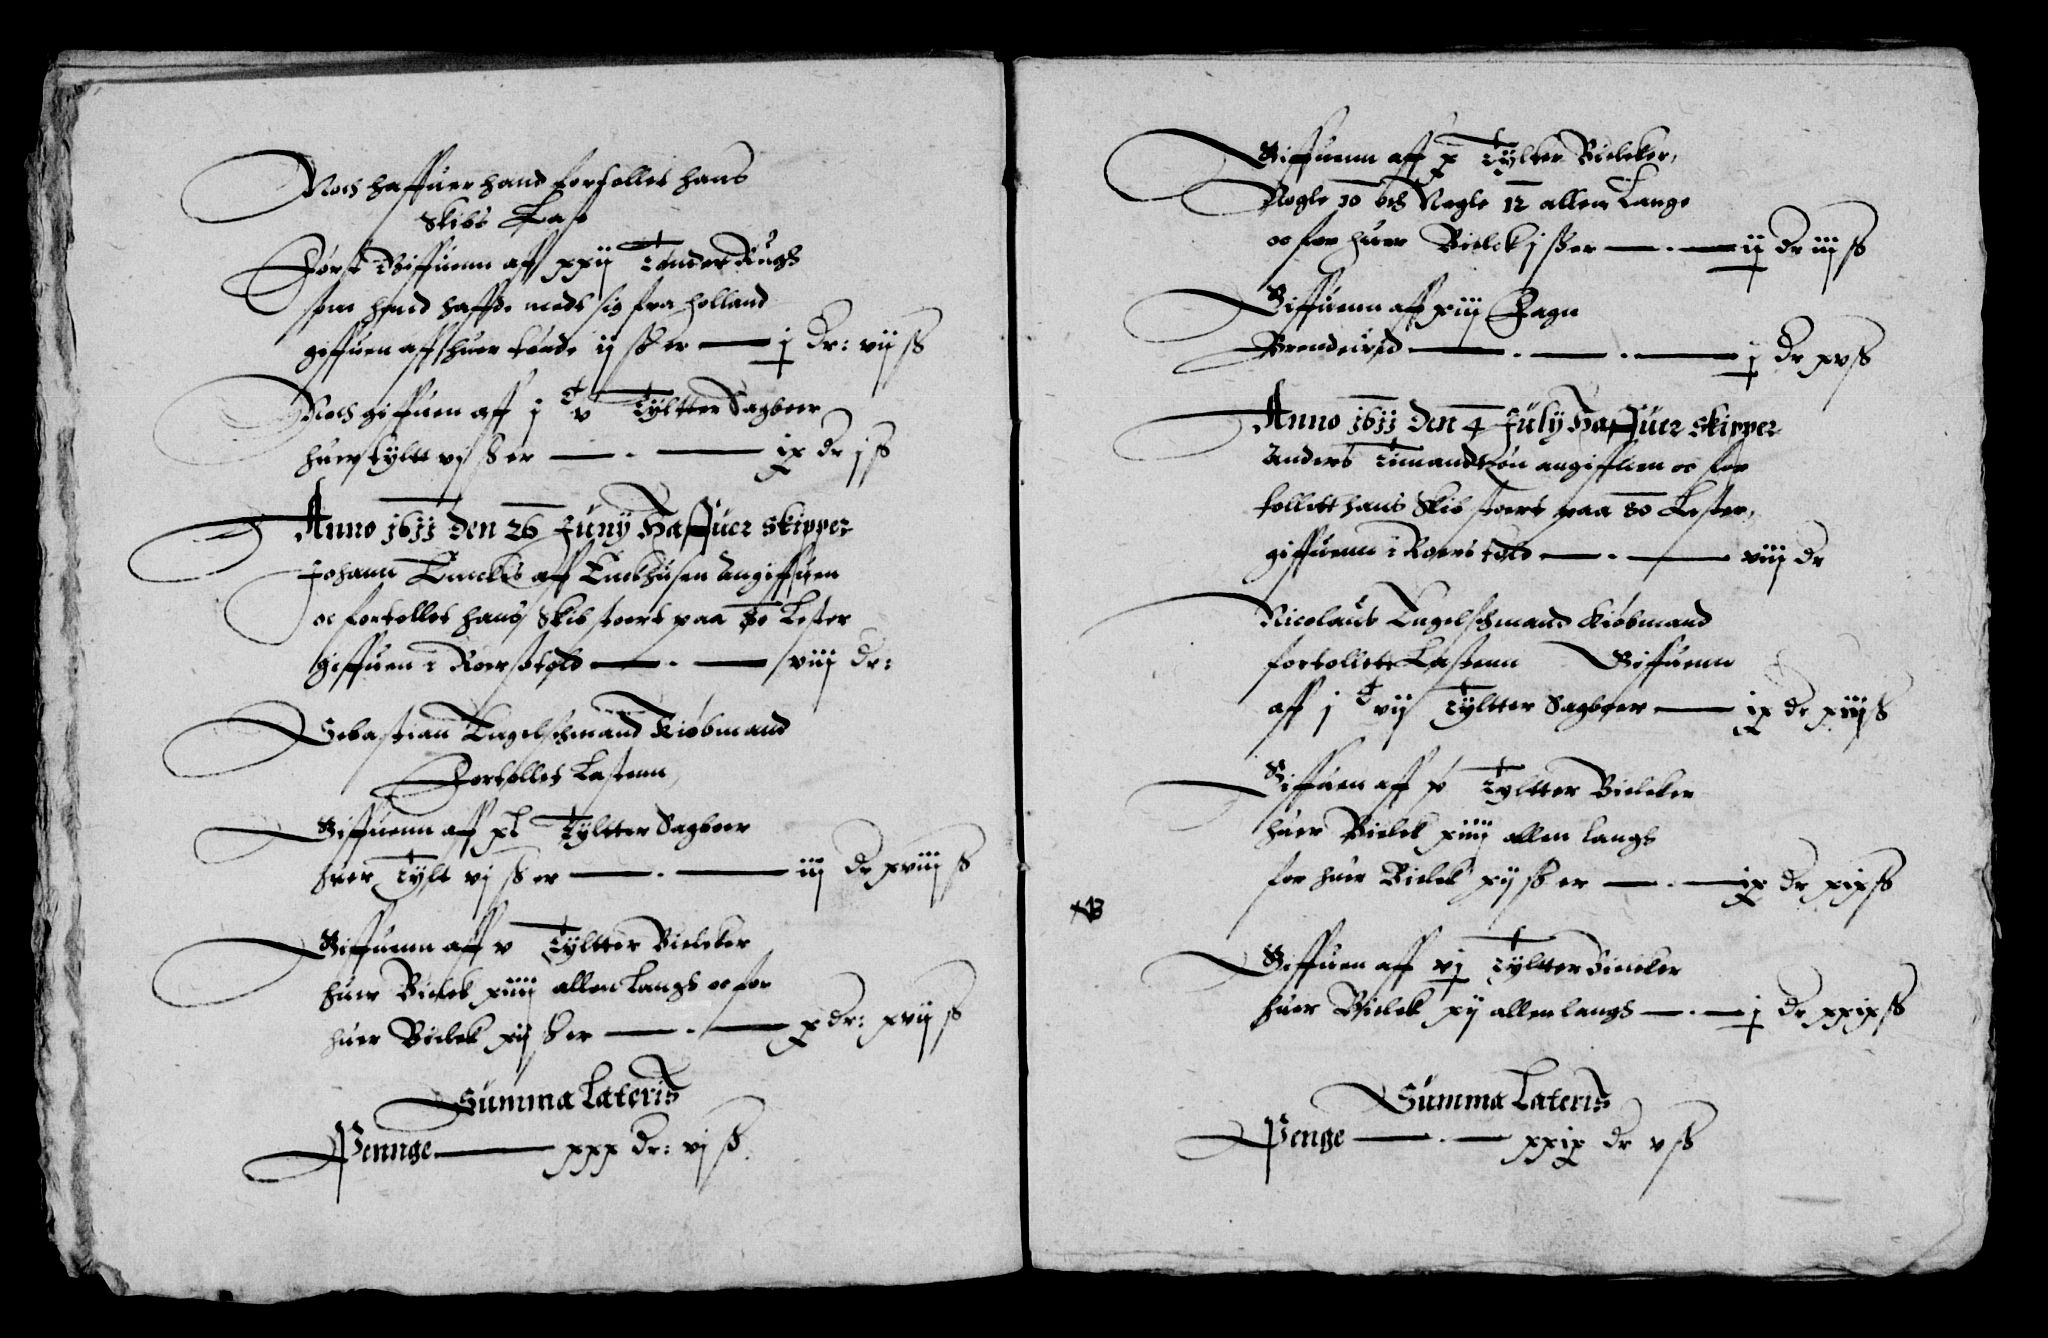 Noch haffuer hand fortolled hans
Skibs Last
Først Giffuenn aff xxij Tønder Rugh
som hand haffde meds sig fra holland
giffuen aff huer tønde ij sker — j Dr: vij ß
Noch giffuen aff j C v Tyltter Sagboer
huer tyltt vj ß er — . — ix dr j ß
Anno 1611 den 26 Juny Haffuer skipper
Johann aff Enckhusen Angiffuen
oc fortolled hans Skib stoert paa 80 Lester
giffuen i Roerstold — . — viij dr:
Sebastian Engelschmand Kiøbmand
Fortolled Lastenn
Giffuenn aff xl Tyltter Sagboer
huer Tylt vj ß er — . — iij dr xviij ß
Giffuenn aff v Tyltter Bielcker
huer Bielck xiiij allen Langs oc for
huer Bielck xij ß er — . — x dr: xvij ß
Summa Lateris
Pennge — xxx dr: vj ß.
Giffuenn aff x Tylter Bielcker,
Nogle 10 och Nogle 12 allen Lange
oc for huer Bielck j ß er — . — ij dr iij ß
Giffuenn aff xiij Fagn
Brendeved — . — . — j dr xv ß
Anno 1611 den 4 July Haffuer skipper
Anders angiffuen oc for
tollett hans Skib stoert paa 80 Lester,
giffuenn i Roers told — . — viij dr
Nicolaus Engelschmand Kiøbmand
fortollett Lastenn Giffuenn
aff j C vij Tyltter Sagboer — ix dr xiij ß
Giffuen aff Tyltter Bielcker
huer Bielck xiiij allen langs
for huer Bielck xij sk er — . — ix dr xix ß
NB
Giffuen aff vj Tyltter Bielcker
huer Bielck xij allen langs — . — j dr xxix ß
Summa Lateris
Penge — . — xxix dr v ß